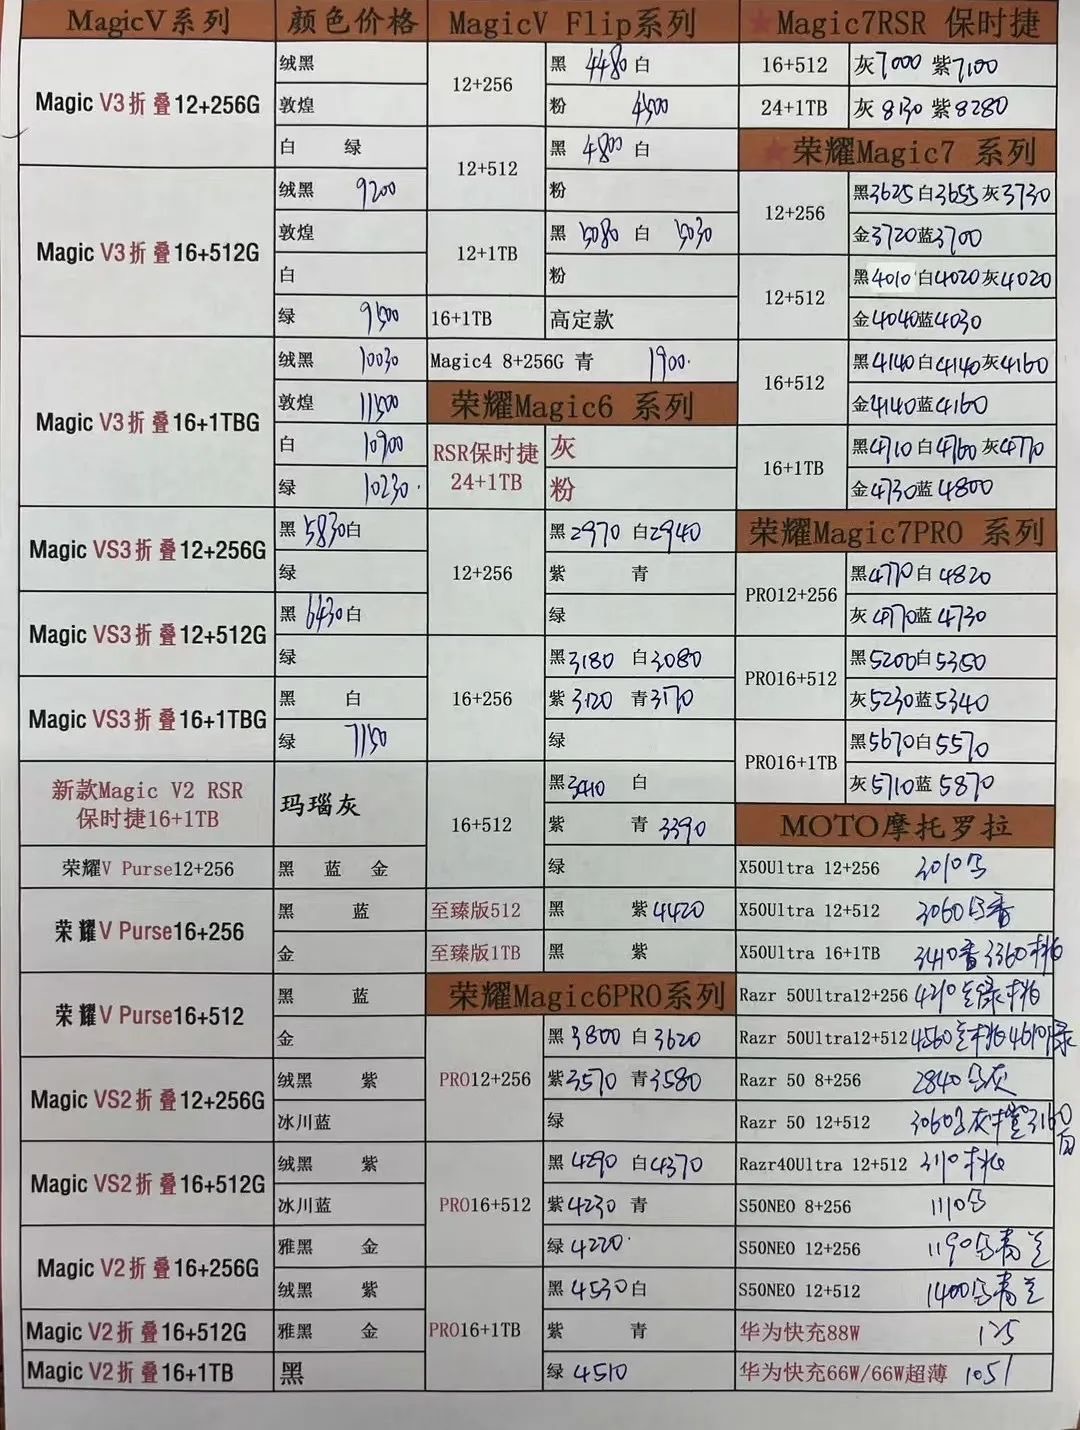 MagicV系列 颜色价格
Magic V3折叠12+256G
绒黑
敦煌
白 绿
Magic V3折叠16+512G
绒黑 9200
敦煌
白
绿 9500
Magic V3折叠16+1TBG
绒黑 10030
敦煌 11500
白 10900
绿 10230
Magic VS3折叠12+256G
黑 5830白
绿
Magic VS3折叠12+512G
黑 6430白
绿
Magic VS3折叠16+1TBG
黑 白
绿 7150
新款Magic V2 RSR
保时捷16+1TB
玛瑙灰
荣耀V Purse12+256
黑 蓝 金
荣耀V Purse16+256
黑 蓝
金
荣耀V Purse16+512
黑 蓝
金
Magic VS2折叠12+256G
绒黑 紫
冰川蓝
Magic VS2折叠16+512G
绒黑 紫
冰川蓝
Magic V2折叠16+256G
雅黑 金
绒黑 紫
Magic V2折叠16+512G
雅黑 金
Magic V2折叠16+1TB
黑
MagicV Flip系列
12+256
黑 4480 白
粉 4500
12+512
黑 4800 白
粉
12+1TB
黑 5080 白 5030
粉
16+1TB 高定款
Magic4 8+256G 青 1900
荣耀Magic6 系列
RSR保时捷
24+1TB
灰
粉
12+256
黑2970 白2940
紫 青
绿
16+256
黑3180 白3080
紫3120 青3170
绿
16+512
黑3410 白
紫 青 3390
绿
至臻版512 黑 紫4420
至臻版1TB 黑 紫
荣耀Magic6PRO系列
PRO12+256
黑 3800 白3620
紫3570 青3580
绿
PRO16+512
黑4290 白4370
紫4230 青
绿4220
PRO16+1TB
黑4530白
紫 青
绿 4510
★Magic7RSR 保时捷
16+512 灰7000 紫7100
24+1TB 灰 8130 紫8280
★荣耀Magic7 系列
12+256
黑3625白3655灰3730
金3720蓝3700
12+512
黑4010白4020灰4020
金4040蓝4030
16+512
黑4140白4140灰4160
金4140蓝4160
16+1TB
黑4710白4760灰4770
金4730蓝4800
荣耀Magic7PRO 系列
PRO12+256
黑4770白4820
灰4770蓝4730
PRO16+512
黑5200白5350
灰5230蓝5340
PRO16+1TB
黑5670白5570
灰5710蓝5870
MOTO摩托罗拉
X50Ultra 12+256
X50Ultra 12+512 3060
X50Ultra 16+1TB 3410 3360
Razr 50Ultra12+256 4210 绿
Razr 50Ultra12+512 4560 4610绿
Razr 50 8+256 2840 灰
Razr 50 12+512 3060 灰 3160
白
Razr40Ultra 12+512
S50NEO 8+256 1110
S50NEO 12+256 1190 青兰
S50NEO 12+512 1400 青兰
华为快充88W 125
华为快充66W/66W超薄 105